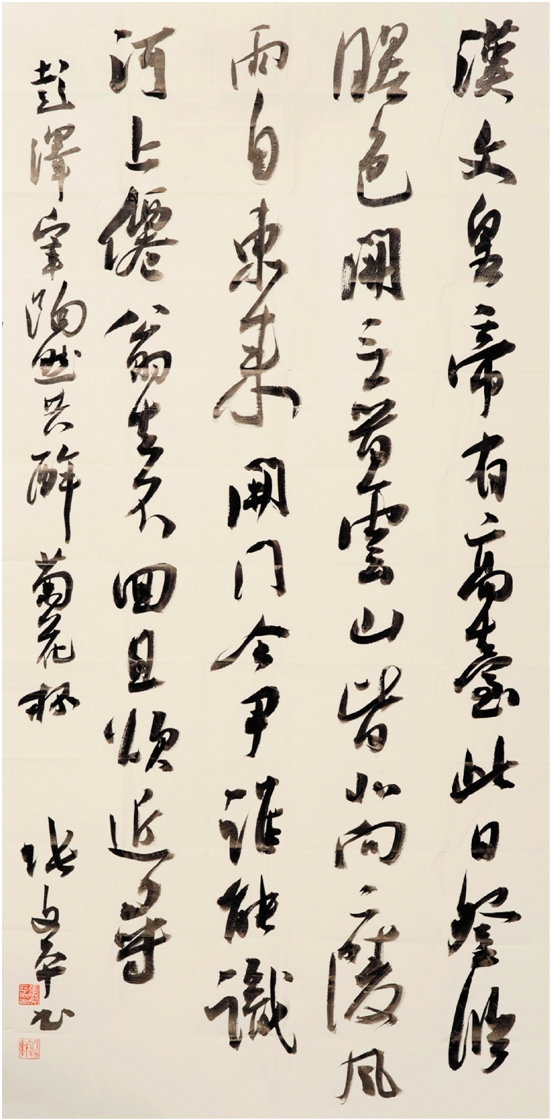 漢文皇帝有高臺此日登臨
曙色開三晉雲山皆北向二陵風
雨自東來關門令尹誰能識
河上僊翁去不回且欲近尋
彭澤宰陶然共醉菊花杯
張文書